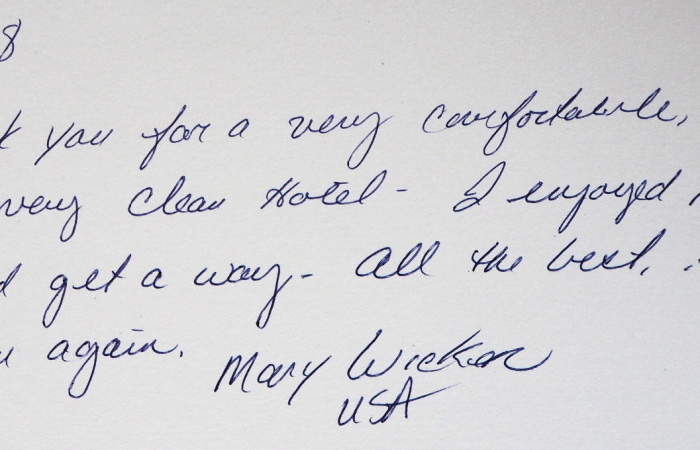 8
k you for a very comfortable,
very Clean Hotel - I enjoyed
get a way - All the best,
again.
Mary Wicker
USA